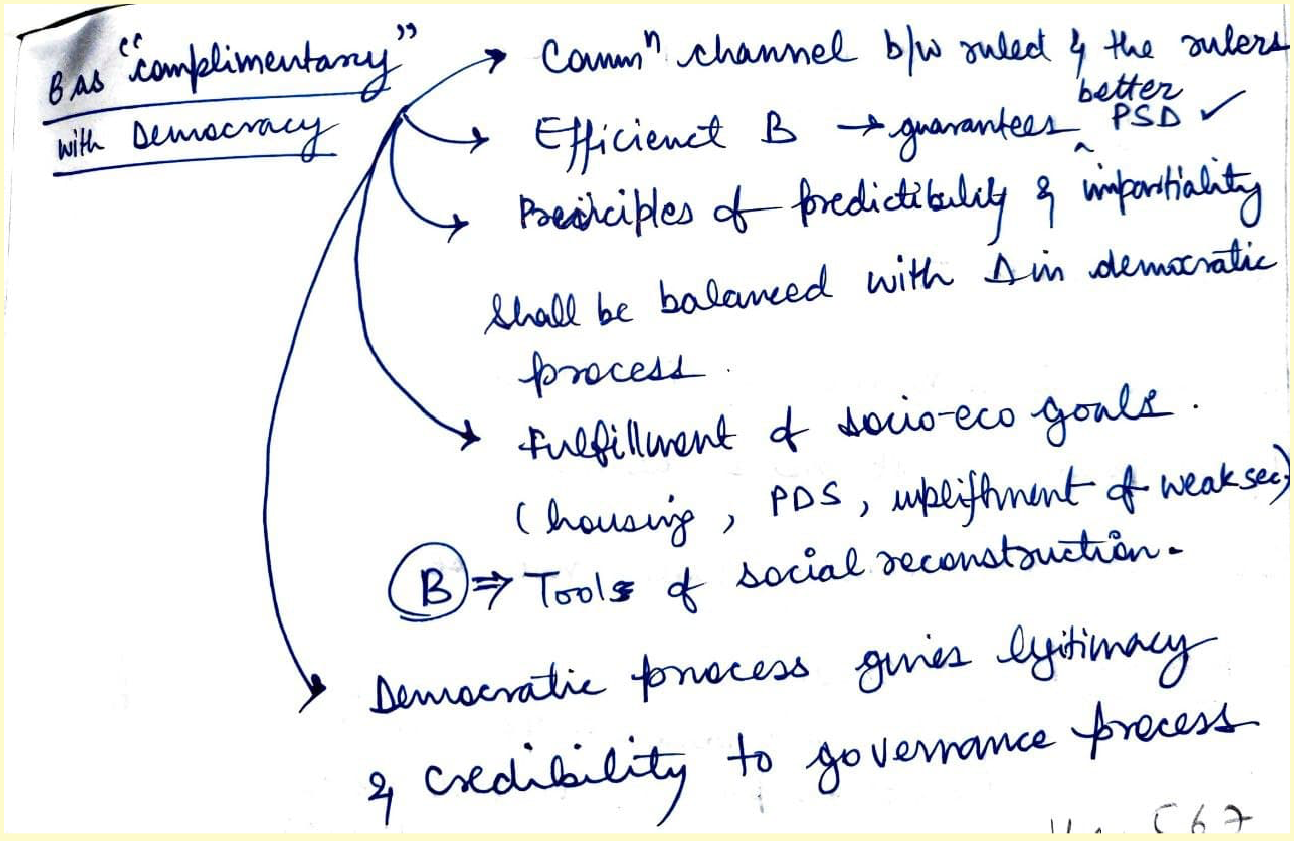 B as "complimentary"
with Democracy
Commⁿ channel b/w ruled & the rulers
better
Efficienct B → guarantees ^ PSD ✓
Principles of predictibility & impartiality
shall be balanced with Δ in democratic
process.
Fulfillment of socio-eco goals.
(housing, PDS, upliftment of weak sec)
B ⇒ Tools of social reconstruction.
Democratic process gives legitimacy
& credibility to governance process
567